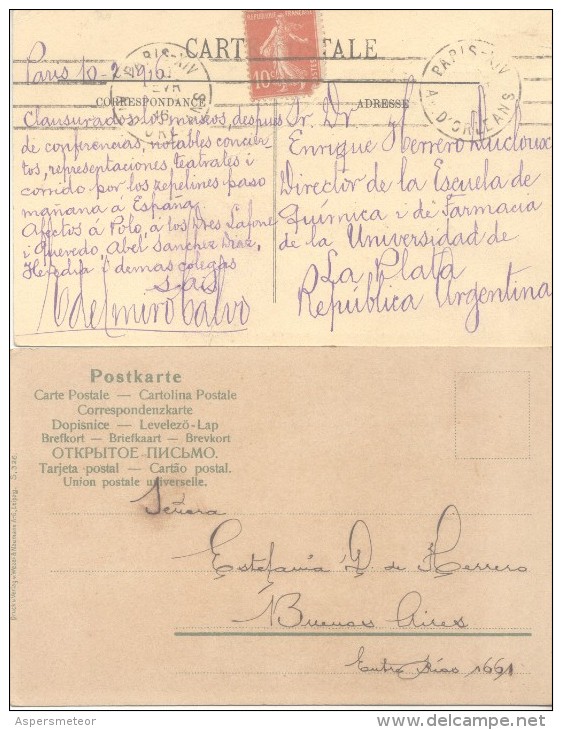 CARTE POSTALE
Paris 10-2-916
REPUBLIQUE FRANÇAISE
10c POSTES
PARIS-XIV
AV. D'ORLEANS
CORRESPONDANCE
ADRESSE
Clausurados los museos, despues
de conferencias, notables concier-
tos, representaciones teatrales i
corrido por los zepelines paso
mañana á España.
Afectos á Polo, á los Dres Lafone
i Quevedo, Abel Sanchez Diaz,
Heredia i demas colegas
Edelmiro Calvo
Sr. Dr.
Enrique Herrero Ducloux
Director de la Escuela de
Química i de Farmacia
de la Universidad de
La Plata
República Argentina
Postkarte
Carte Postale — Cartolina Postale
Correspondenzkarte
Dopisnice — Levelező-Lap
Brefkort — Briefkaart — Brevkort
ОТКРЫТОЕ ПИСЬМО.
Tarjeta postal — Cartão postal.
Union postale universelle.
S. 346.
Señora
Estefanía D. de Herrero
Buenos Aires
Entre Ríos 1661
Aspersmeteor
delcampe.net